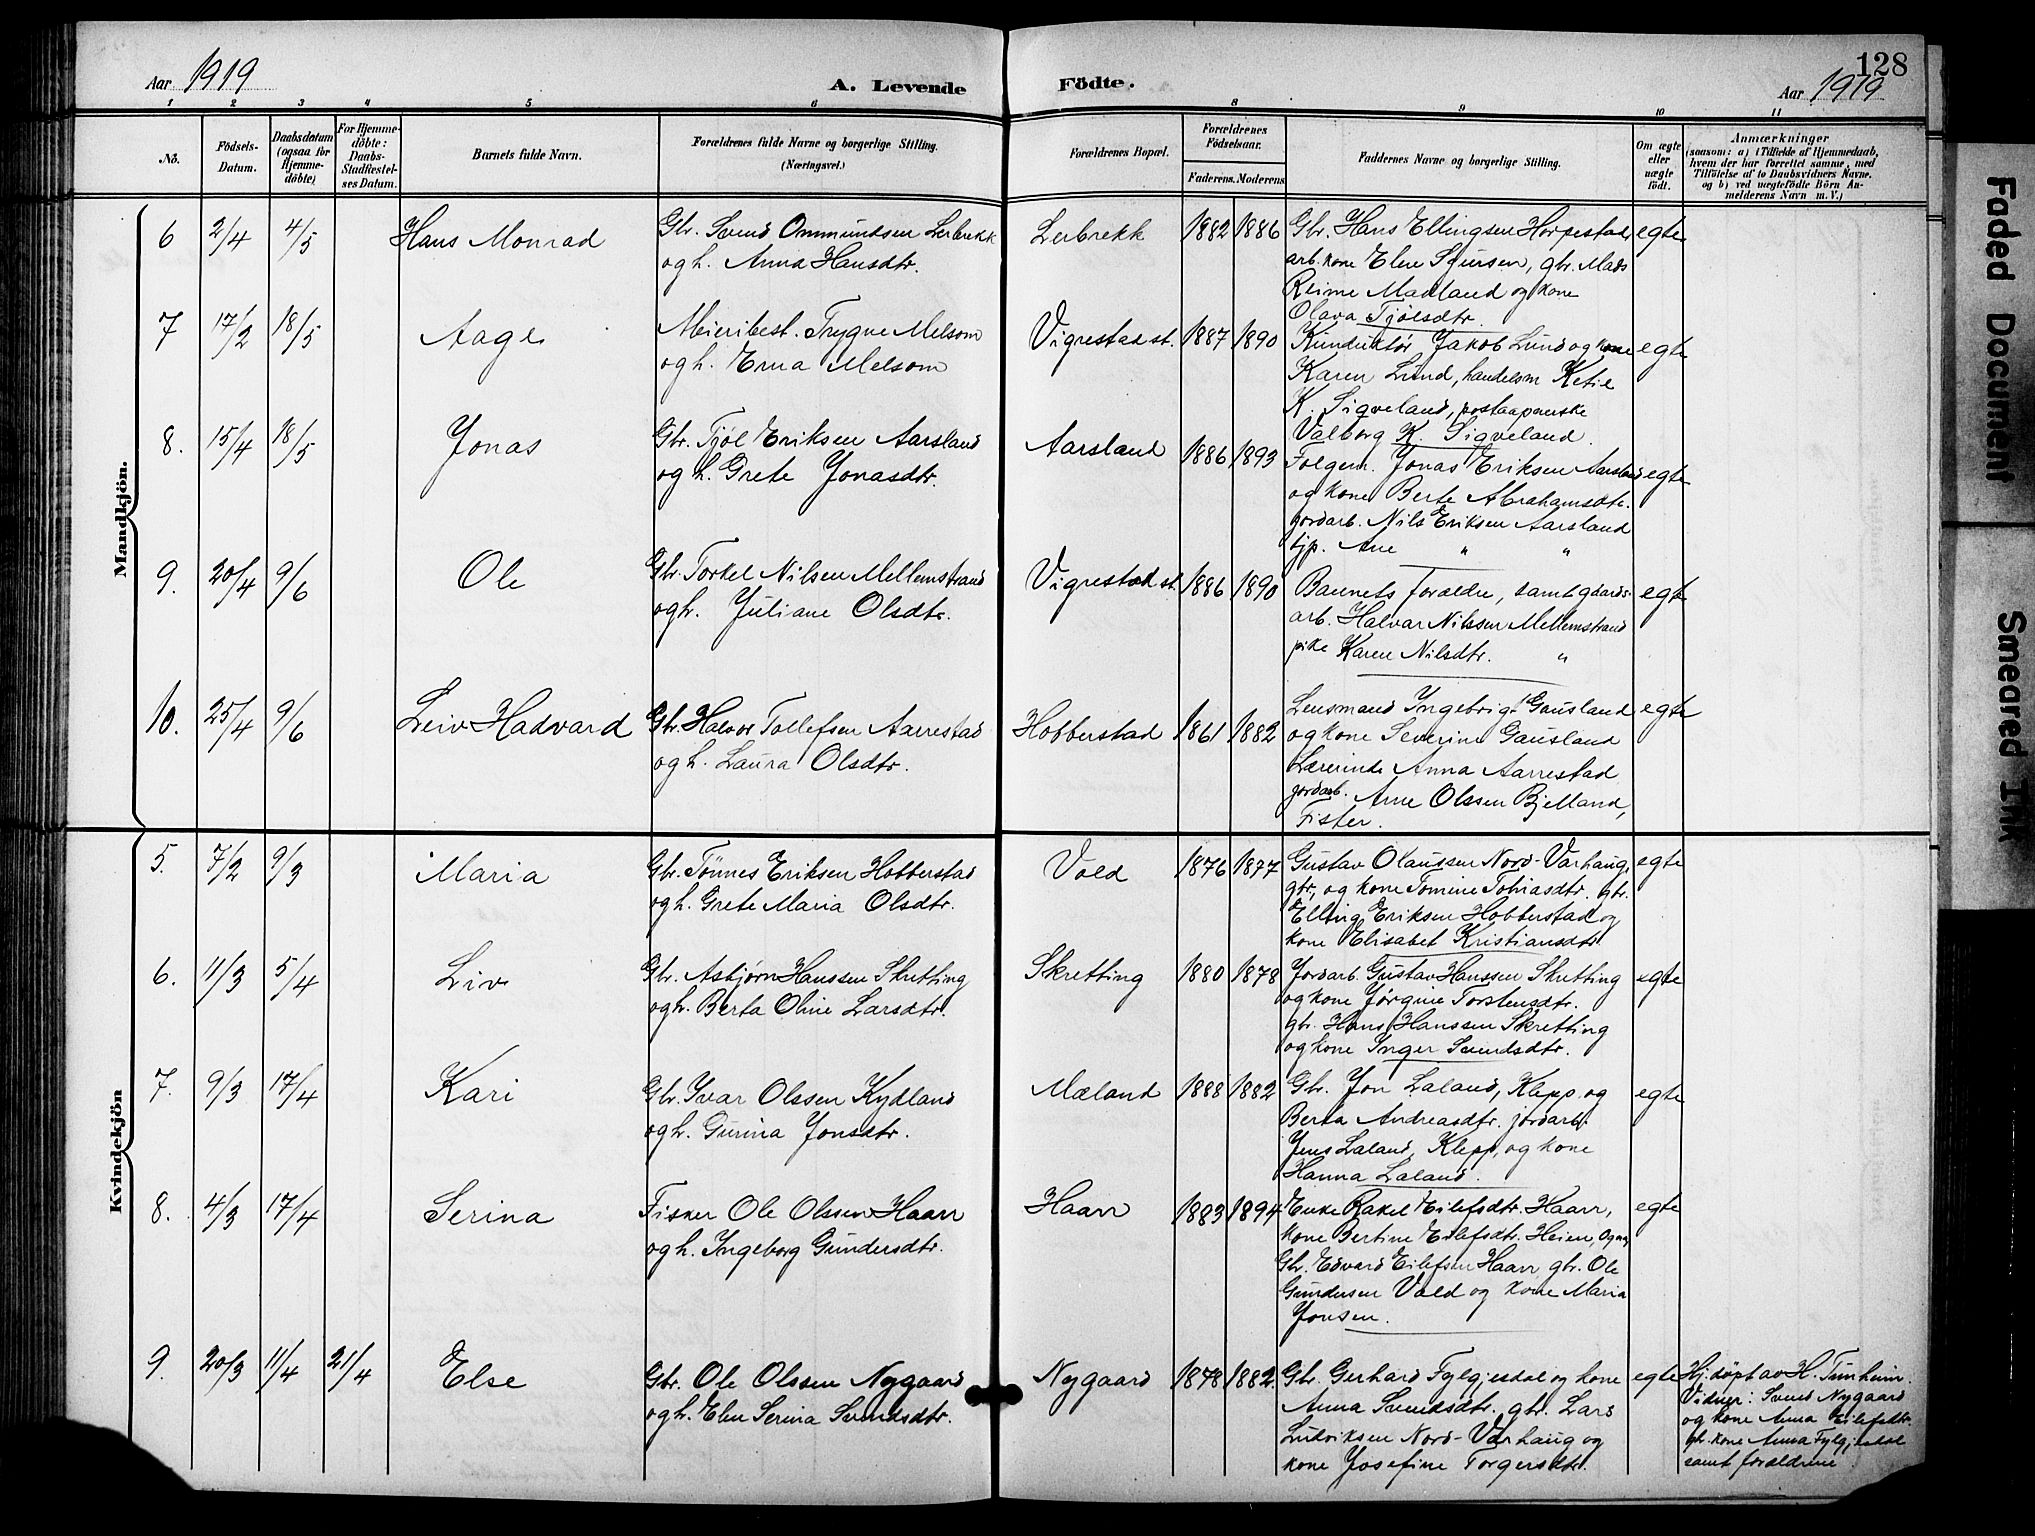 128
Aar 1919
A. Levende
Födte.
Aar 1919
1 2 3 4 5 6 8 9 10 11
No.
Födsels-
Datum.
Daabsdatum
(ogsaa for
Hjemme-
döbte)
For Hjemme-
döbte:
Daabs-
Stadfæstel-
ses Datum.
Barnets fulde Navn.
Forældrenes fulde Navne og borgerlige Stilling.
(Næringsvei.)
Forældrenes Bopæl.
Forældrenes
Födselsaar.
Faderens. Moderens
Faddernes Navne og borgerlige Stilling.
Om ægte
eller
uægte
födt.
Anmærkninger
(saasom: a) i Tilfælde af Hjemmedaab,
hvem der har forrettet samme, med
Tilföielse af to Daabsvidners Navne.
og b) ved uægtefödte Börn An-
melderens Navn m. V.)
Mandkjön.
6 2/4 4/5 Hans Monrad
Gbr. Svend Ommundsen Lerbrekk
og h. Anna Hansdtr.
Lerbrekk 1882 1886
Gbr. Hans Ellingsen Horpestad,
arb. kone Elen Sjursen, gbr. Mads
Reime Madland og kone
Olava Tjølsdtr.
egte
7 17/2 18/5 Aage
Meieribest. Trygve Melsom
og h. Erna Melsom
Vigrestad st. 1887 1890
Kunduktør Jakob Lund og kone
Karen Lund, handelsm Ketil
K. Sigveland, postaapnerske
Valborg K. Sigveland.
egte
8. 15/4 18/5 Jonas
Gbr. Tjøl Eriksen Aarsland
og h. Grete Jonasdtr.
Aarsland 1886 1893
Folgem. Jonas Eriksen Aarsland
og kone Berte Abrahamsdtr.
gardarb. Nils Eriksen Aarsland
tjp. Ane " "
egte
9. 20/4 9/6 Ole
Gbr. Torkel Nilsen Mellemstrand
og h. Juliane Olsdtr.
Vigrestad st. 1886 1890
Barnets forældre, samt gaards-
arb. Halvar Nilssen Mellemstrand
pike Karen Nilsdtr. "
egte
10. 25/4 9/6 Leiv Hadvard
Gbr. Halvor Tollefsen Aarrestad
og h. Laura Olsdtr.
Hobberstad 1861 1882
Lensmand Ingebrigt Gausland
og kone Severine Gausland
Lærerinde Anna Aarrestad
gardarb. Arne Olssen Bjelland,
Fister.
egte
Kvindekjön
5. 7/2 9/3 Maria
Gbr. Tönnes Eriksen Hobberstad
og h. Grete Maria Olsdtr.
Vold 1876 1877
Gustav Olaussen Nord-Varhaug,
gbr., og kone Tomine Tobiasdtr. gbr.
Elling Eriksen Hobberstad og
kone Elisabet Kristiansdtr.
egte
6. 11/3 5/4 Liv
Gbr. Asbjørn Hanssen Skretting
og h. Berta Oline Larsdtr.
Skretting 1880 1878
Jordarb. Gustav Hanssen Skretting
og kone Jørgine Torstensdtr.
gbr. Hans Hanssen Skretting
og kone Inger Svendsdtr.
egte
7. 9/3 17/4 Kari
Gbr. Ivar Olssen Kydland
og h. Gurina Jonsdtr.
Mæland 1888 1882
Gbr. Jon Laland, Klepp og
Berta Andreasdtr. jordarb.
Jens Laland, Klepp, og kone
Hanna Laland.
egte
8. 4/3 17/4 Serina
Fisker Ole Olssen Haarr
og h. Ingeborg Gundersdtr.
Haarr 1883 1894
Enke Rakel Eilefsdtr. Haarr,
kone Bertine Eilefsdtr. Heien, Ogna,
Gbr. Edvard Eilefsen Haarr, gbr. Ole
Gundersen Vold og kone Maria
Jonsen.
egte
9. 20/3 11/4 21/4 Else
Gbr. Ole Olssen Nygaard
og h. Elen Serina Svendsdtr.
Nygaard 1878 1882.
Gbr. Gerhard Fylgjesdal og kone
Anna Svendsdtr. gbr. Lars
Ludviksen Nord-Varhaug og
kone Josefine Torgersdtr.
egte
Hj. døpt av H. Tunheim.
Vidner: Svend Nygaard
og kone Anna Eilefsdtr.
gb. kone Anna Fylgjesdal
samt forældrene.
Faded Document
Smeared Ink